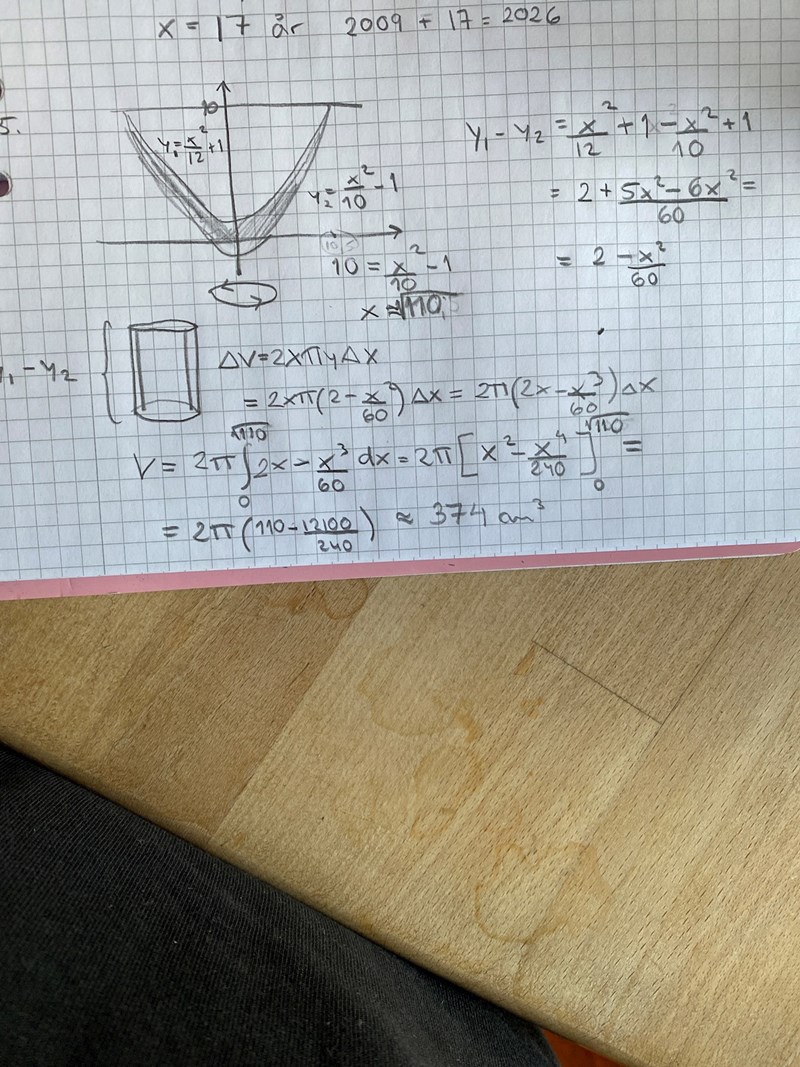 x = 17 år 2009 + 17 = 2026
5.
10
y₁ = x²/12 + 1
y₂ = x²/10 - 1
10 = x²/10 - 1
x ≈ √110
y₁ - y₂ = x²/12 + 1 - x²/10 + 1
= 2 + (5x² - 6x²)/60 =
= 2 - x²/60
y₁ - y₂
ΔV = 2xπyΔx
= 2xπ(2 - x²/60)Δx = 2π(2x - x³/60)Δx
V = 2π ∫₀^√110 2x - x³/60 dx = 2π[x² - x⁴/240]₀^√110 =
= 2π(110 - 12100/240) ≈ 374 cm³